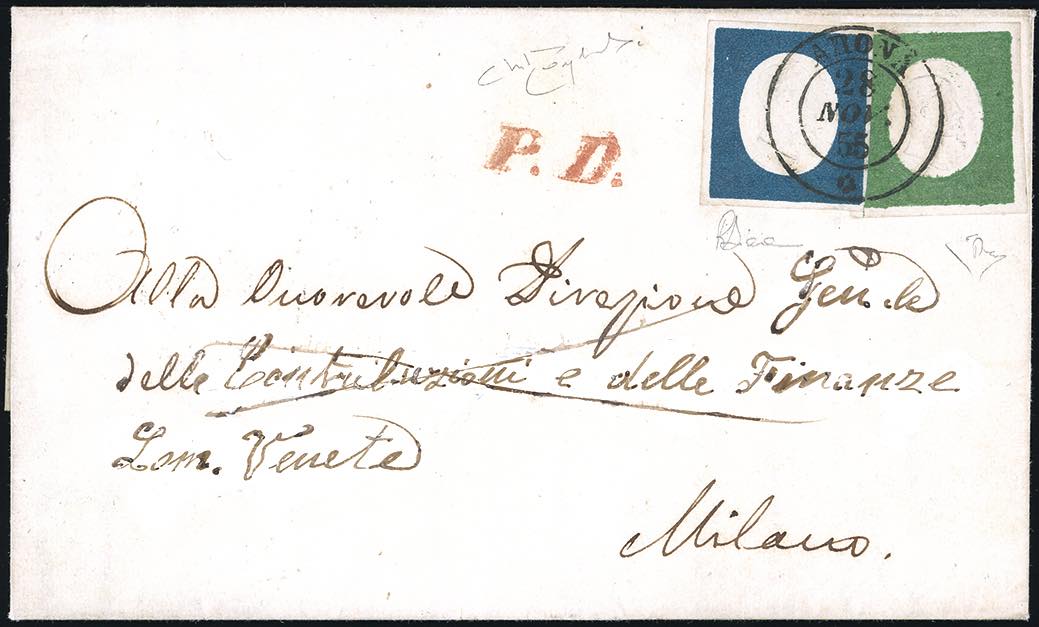 P. D.
ARONA
28
NOV.
55
Alla Onorevole Direzione Gen.le
delle Contribuzioni e delle Finanze
Lom. Venete
Milano.